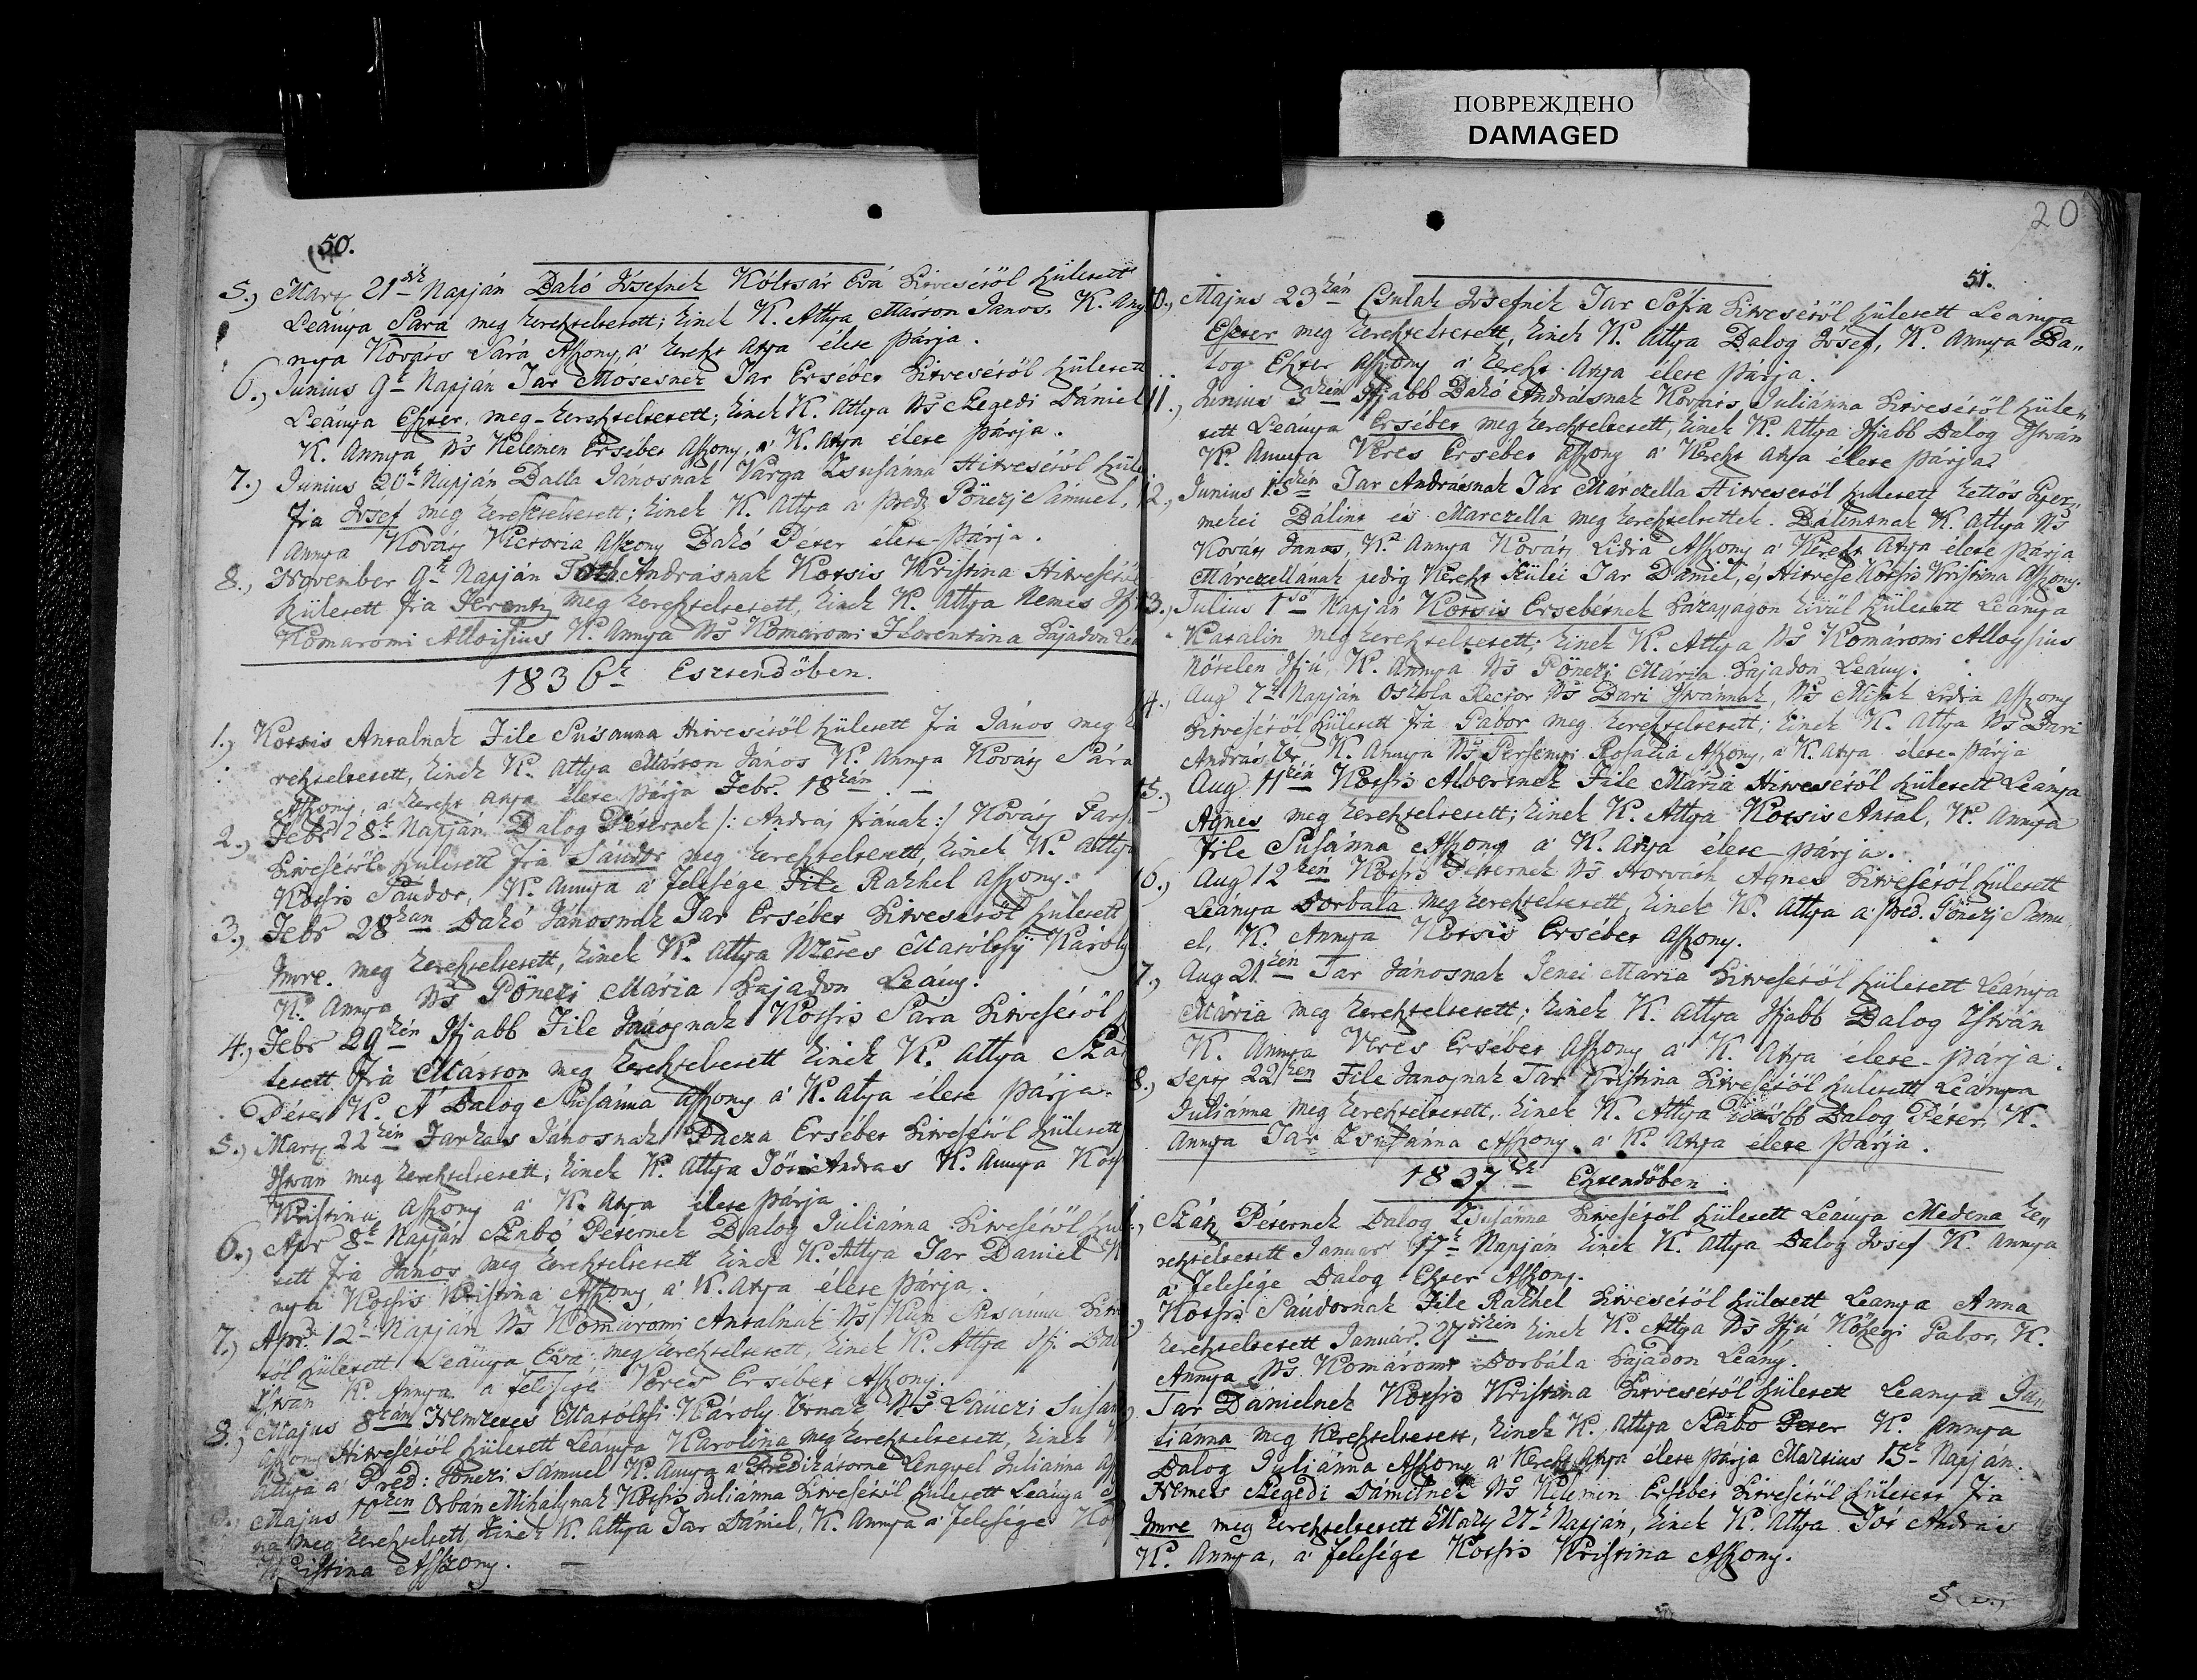 ПОВРЕЖДЕНО
DAMAGED
20
50.
5., Martz 21dik Napján Dakó Jósefnek Kóltsár Eva hitvesétöl született
Leánya Sára meg kereszteltetett; kinek K. Attya Márton Janos. K. Any
nya Kováts Sára Aszszony, a' kereszt atya élete párja.
6., Junius 9k Napján Tar Mósesnek Tar Ersébet hitvesétöl született
Leánya Eszter, meg-kereszteltetett; kinek K. Attya Ns Szegedi Dániel
K. Annya Ns Kelemen Ersébet Aszszony, a' K. atya élete párja.
7., Junius 20k Napján Dalla Jánosnak Varga Zsusánna Hitvesétöl szüle
fia Josef meg kereszteltetett; kinek K. Attya a' Préd Pönczi Sámuel,
Annya Kovátz Victoria Aszszony Dakó Péter élete-párja.
8., November 9k Napján Toth Andrásnak Kotsis Kristina Hitvesétöl
született fia Ferentz meg kereszteltetett, kinek K. Attya Nemes Ifj
Komaromi Alloisius K. Annya Ns Komaromi Florentina hajadon Lea
1836k Esztendöben.
1., Kotsis Antalnak File Susanna Hitvesétöl született fia János meg k
reszteltetett, kinek K. Attya Márton János K. Annya Kovátz Sára
Aszszony, a' kereszt atya élete párja Febr. 18kán.
2., Febr 28k Napján Dalog Péternek /: András fiának :/ Kovátz
hitvesétöl született fia Sándor meg kereszteltetett, kinek K. Attya
Kotsis Sándor, K. Annya a' felesége File Rakhel Aszszony.
3., Febr 28kan Dakó Jánosnak Tar Ersébet hitvesétöl született
Imre. meg kereszteltetett, kinek K. Attya Matóltsÿ Károly
K. Annya Ns Pönczi Mária hajadon Leány.
4., Febr 29kén Ifjabb File Jánosnak Kotsis Sára hitvesétöl
letett fia Márton meg kereszteltetett kinek K. Attya Szát
Péter K. A Dalog Susánna Aszszony a' K. Atya élete párja.
5., Martz 22kén Farkas Jánosnak Pacza Ersébet hitvesétöl született
István meg kereszteltetett, kinek K. Attya András K. Annya Kots
Kristina Aszszony a' K. Atya élete párja.
6., Apr 8k Napján Szabó Péternek Dalog Juliánna hitvesétöl szü
tett fia János meg kereszteltetett kinek K. Attya Tar Daniel K
nya Kotsis Kristina Aszszony a' K. Atya élete párja.
7., Apr. 12k Napján Ns Komáromi Antalnak Ns Kun Susánna hitv
töl született Leánya Éva meg kereszteltetett, kinek K. Attya Ifj. Dal
István K. Annya a felesége Veres Ersébet Aszszony.
8., Majus 8kán Nemzetes Matóltsi Károly Urnak Ns Lauczi Susan
Aszszony Hitvesétöl született Leánya Karolina meg kereszteltetett, kinek K
Attya a' Préd: Pönczi Sámuel K. Annya a' Prédikátorné Lengyel Julianna Asz
Majus kén Orbán Mihálynak Kotsis Julianna hitvesétöl született Leánya
na meg kereszteltett, kinek K. Attya Tar Dániel, K. Annya a' felesége Kot
Kristina Aszszony.
51.
10., Majus 23kán Csulak Josefnek Tar Sófia hitvesétöl született Leánya
Eszter meg kereszteltetett, kinek K. Attya Dalog Jósef, K. Annya Da„
log Eszter Aszszony a' kereszt Atya élete párja.
11., Junius 3kén Ifjabb Dakó Andrásnak Kováts Juliánna hitvesétöl szüle„
tett Leánya Ersébet meg kereszteltetett, kinek K. Attya Ifjabb Dalog István
K. Annya Veres Ersébet Aszszony a' Kereszt atya élete párja.
12., Junius 15kén Tar Andrasnak Tar Márczella Hitvesétöl született kettös Gyer„
mekei Bálint és Marczella meg kereszteltettek. Bálintnak K. Attya Ns
Kovátz Janos, K. Annya Kovátz Lidia Aszszony a' Kereszt atya élete párja
Márczellának pedig Kereszt szülei Tar Dániel, és Hitvese Kotsis Kristina Aszszony.
13., Julius 1sö Napján Kotsis Ersebétnek házasságon kivül született Leánya
Katalin meg kereszteltetett; kinek K. Attya Ns Komáromi Alloysius
nötelen Ifjú, K. Annya Ns Pönczi Mária hajadon Leány.
14., Aug 7k Napján Oskola Rector Ns Dari Istvánnak, Ns Lidia Aszszony
hitvesétöl született fia Gábor meg kereszteltetett; kinek K. Attya Ns Dari
András Ur K. Annya Ns Rosalia Aszszony, a' K. atya élete párja
15., Aug 11kén Kotsis Albertnek File Mária Hitvesétöl született Leánya
Agnes meg kereszteltetett; kinek K. Attya Kotsis Antal, K. Annya
File Susánna Aszszony a' K. Atya élete párja.
16., Aug 12kén Kotsis Péternek Ns Horváth Agnes hitvesétöl született
Leánya Borbala meg kereszteltetett kinek K. Attya a Préd. Pönczi Sámu
el, K. Annya Kotsis Ersébet Aszszony.
7., Aug 21kén Tar Jánosnak Jenei Maria hitvesétöl született Leánya
Mária meg kereszteltetett; kinek K. Attya Ifjabb Dalog István
K. Annya Veres Ersébet Aszszony a' K. Atya élete-párja.
8., Sept 22kén File Janosnak Tar Kristina hitvesétöl született Leánya
Juliánna meg kereszteltetett, kinek K. Attya idösbb Dalog Péter, K.
Annya Tar Zsusánna Aszszony a' K. Atya élete párja.
1837k Esztendöben.
1., Szátz Péternek Dalog Zsusánna hitvesétöl született Leánya Medena ke„
reszteltetett Januar 17k Napján kinek K. Attya Dalog Josef K. Annya
a' felesége Dalog Eszter Aszszony.
Kotsis Sándornak File Rakhel hitvesétöl született Leanya Anna
kereszteltetett Január. 27dikén kinek K. Attya Ns Ifjú Köszegi Gabor, K.
Annya Ns Komáromi Borbála hajadon Leány.
Tar Dánielnek Kotsis Kristina hitvesétöl született Leanya Ju„
liánna meg Kereszteltetett, kinek K. Attya Szabo Peter K. Annya
Dalog Juliánna Aszszony a' Kereszt Atya élete párja Martius 15k Napján.
Nemes Szegedi Dánielnek Ns Kelemen Ersébet hitvesétöl született fia
Imre meg kereszteltetett Martz 27k Napján, kinek K. Attya András
K. Annya, a' felesége Kotsis Kristina Aszszony.